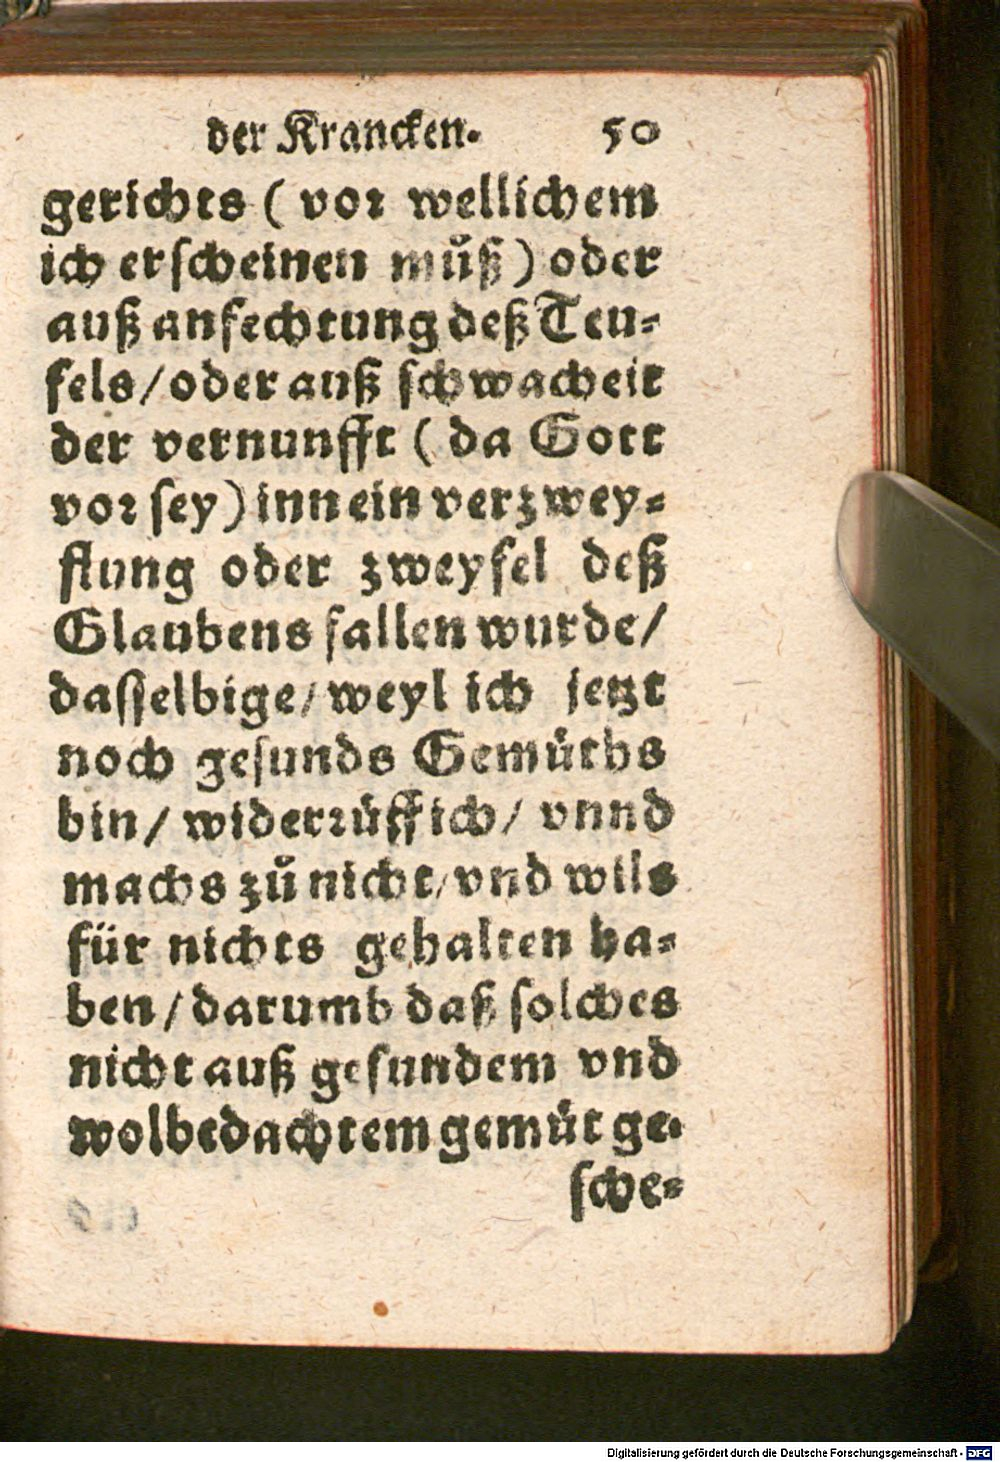 der Krancken. 50
gerichts ( vor wellichem
ich erscheinen muͦß ) oder
auß anfechtung deß Teu⸗
fels / oder auß schwacheit
der vernunfft ( da Gott
vor sey ) inn ein verzwey⸗
flung oder zweyfel deß
Glaubens fallen wurde /
dasselbige / weyl ich jetzt
noch gesunds Gemuͤths
bin / widerruͤff ich / vnnd
machs zuͦ nicht / vnd wils
für nichts gehalten ha⸗
ben / darumb daß solches
nicht auß gesundem vnd
wolbedachtem gemuͤt ge⸗
sche⸗
Digitalisierung gefördert durch die Deutsche Forschungsgemeinschaft - DFG